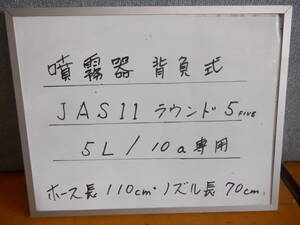 噴霧器 背負式
JAS11 ラウンド5 FIVE
5L/10a専用
ホース長110cm・ノズル長70cm